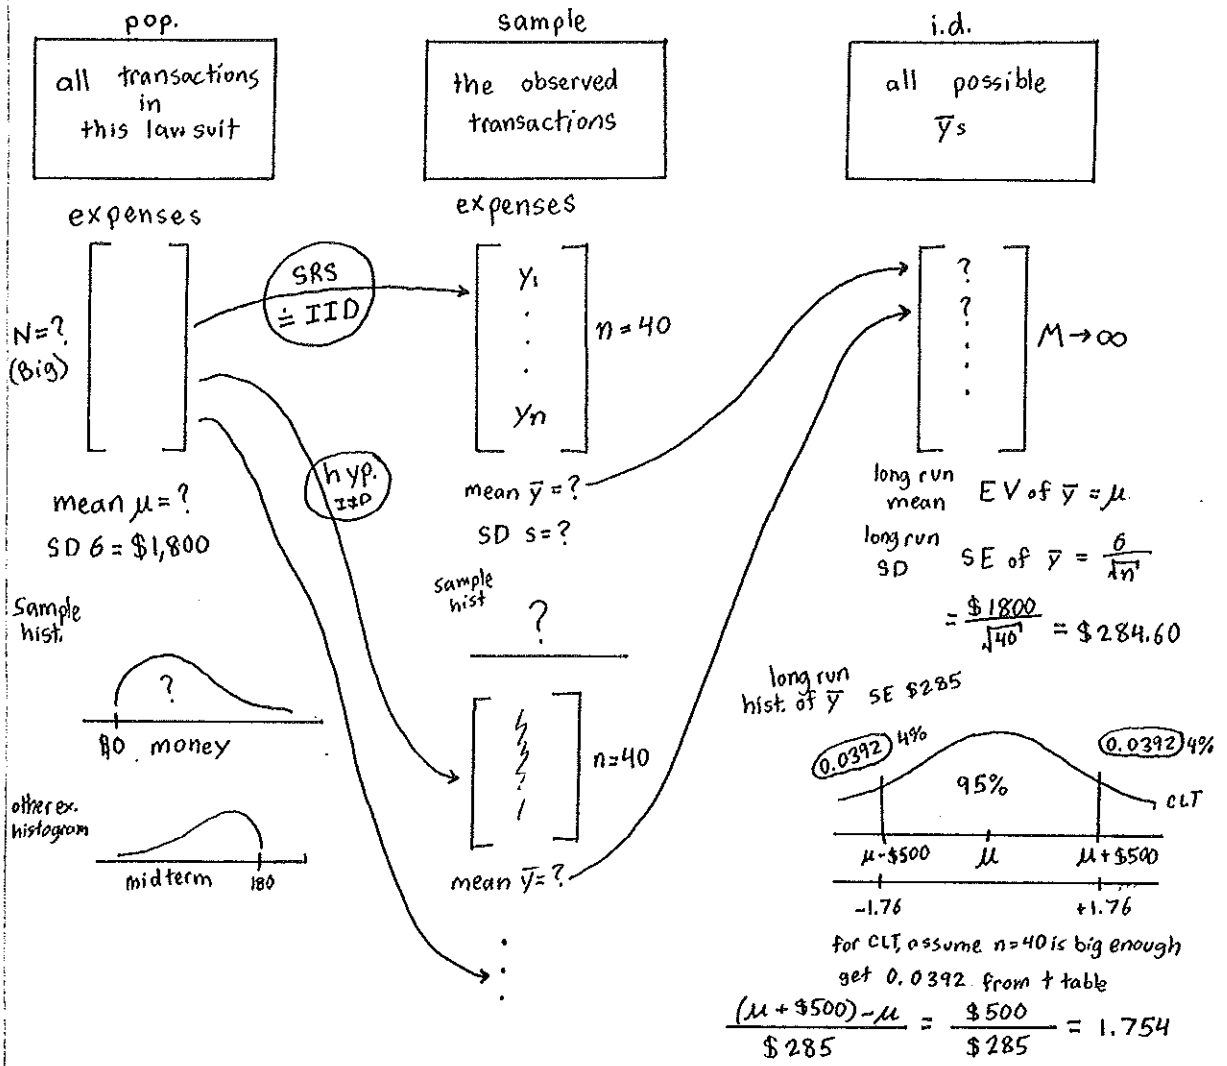 pop.
all transactions
in
this lawsuit
expenses
N=?
(Big)
mean μ=?
SD σ = $1,800
Sample
hist.
?
$0 money
other ex.
histogram
midterm 180
SRS
≐ IID
hyp.
IID
sample
the observed
transactions
expenses
y₁
.
.
.
yn
n=40
mean ȳ=?
SD s=?
sample
hist
?
n=40
mean ȳ=?
.
.
.
i.d.
all possible
ȳs
?
?
.
.
.
M→∞
long run
mean EV of ȳ = μ
long run
SD SE of ȳ = σ/√n
= $1800/√40 = $284.60
long run
hist. of ȳ SE $285
0.0392 4% 95% 0.0392 4%
CLT
μ-$500 μ μ+$500
-1.76 +1.76
for CLT, assume n=40 is big enough
get 0.0392 from t table
(μ+$500)-μ/$285 = $500/$285 = 1.754